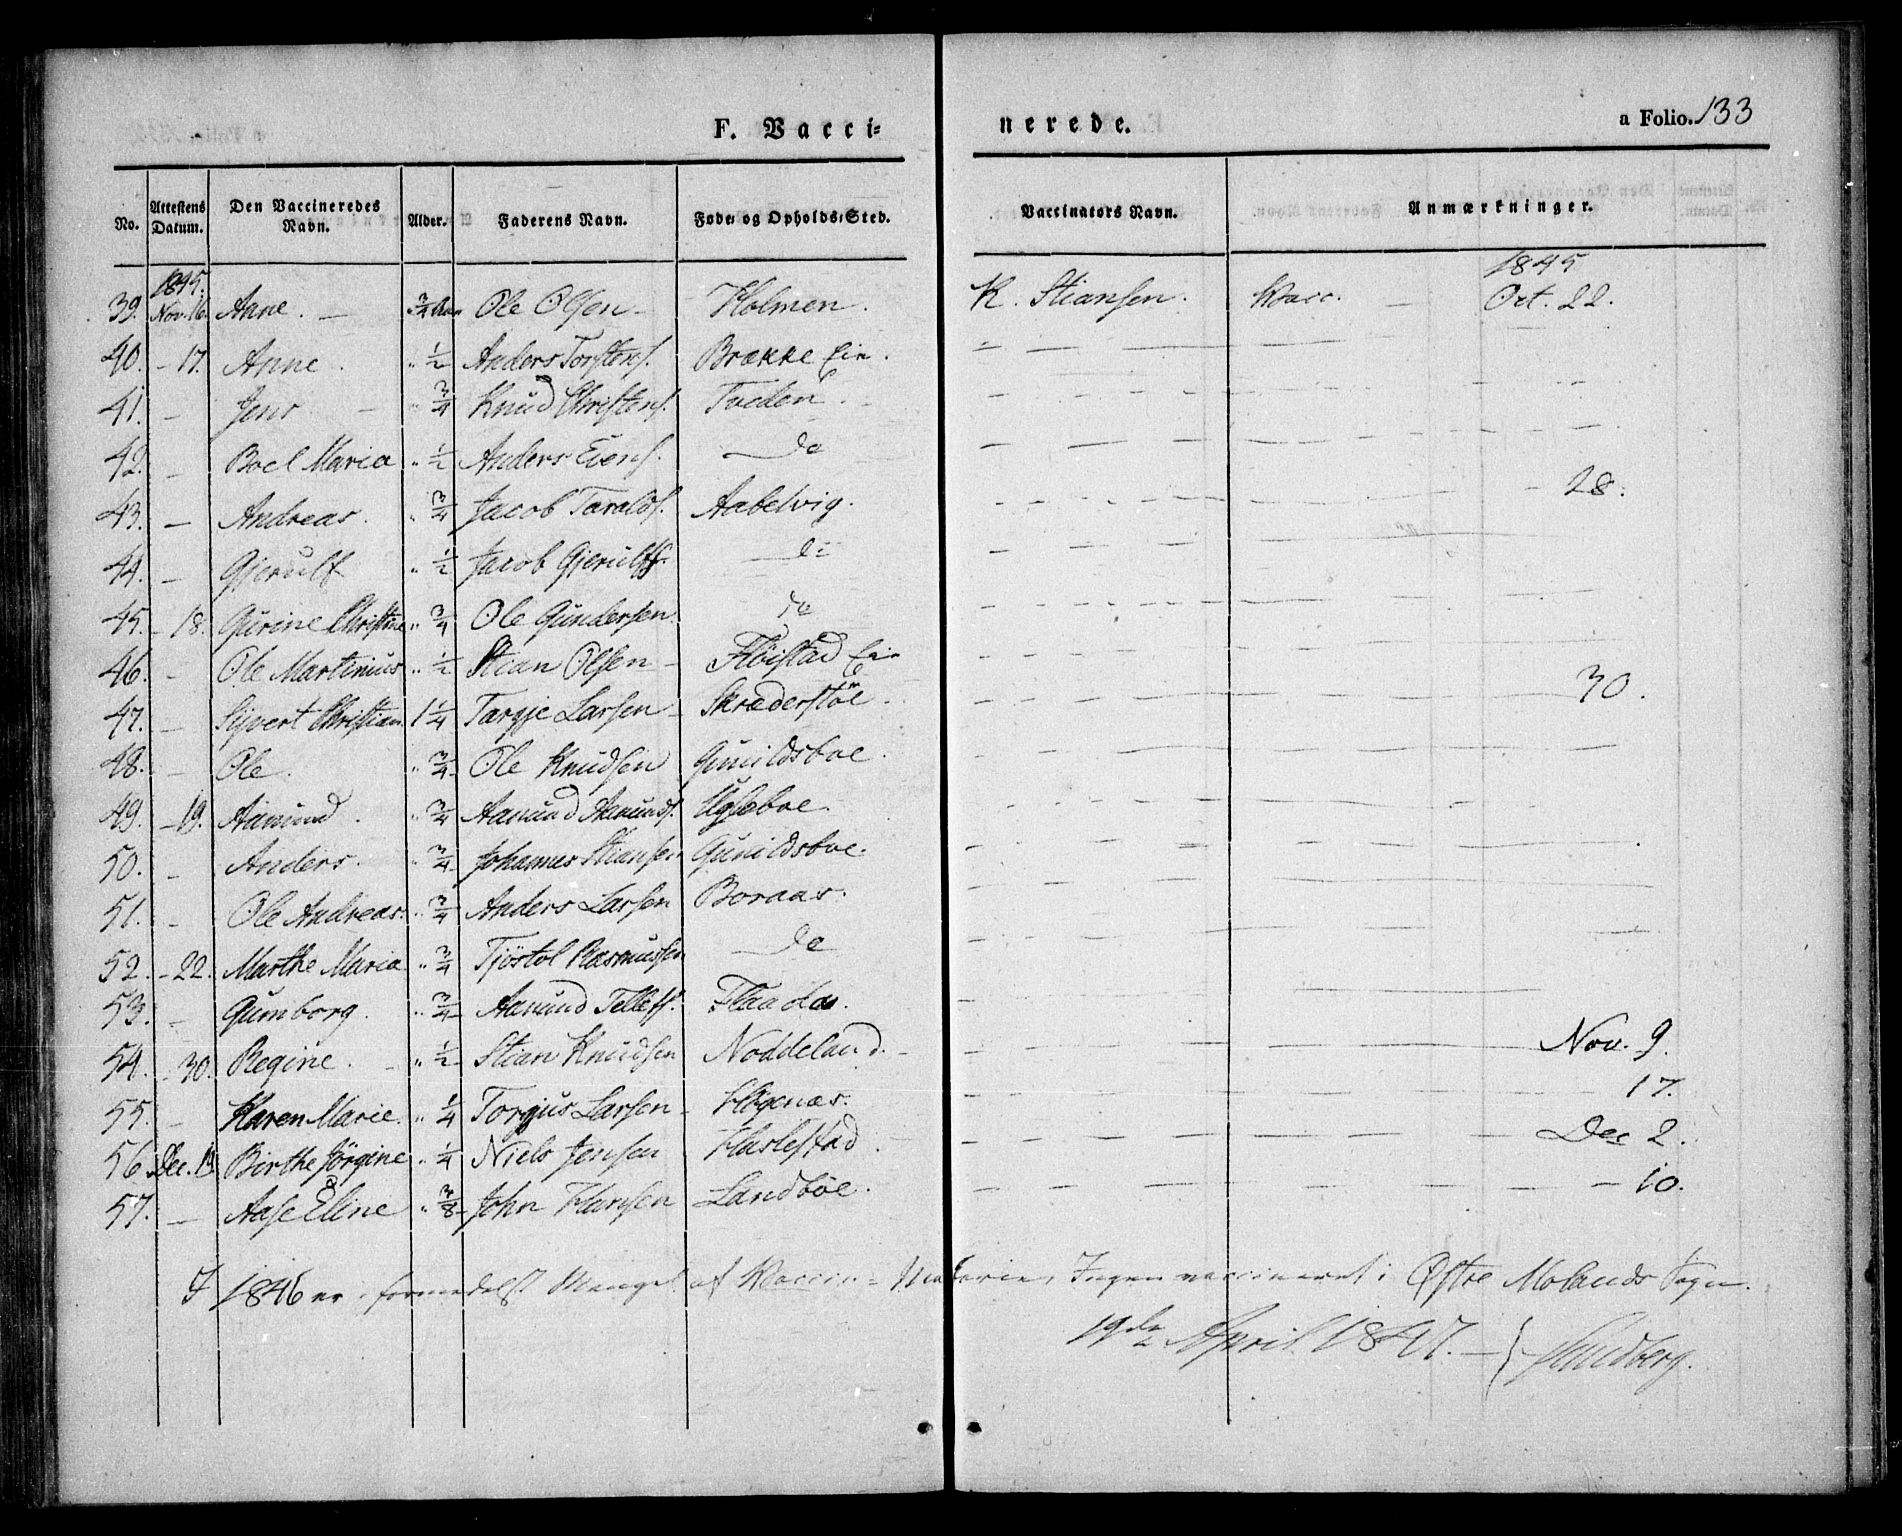 F. Vacci= nerede. a Folio. 133
No. Attestens Datum. Den Vaccineredes Navn. Alder. Faderens Navn. Føde= og Opholds=Sted. Vaccinators Navn. Anmærkninger.
1845. 1845
39. Nov. 16. Aane. — " 3/4 Aar Ole Olsen — Holmen. K. Stiansen. Vacc. — Oct. 22.
40. - 17. Anne. " 1/2 Anders Torstens. Brække Eie.
41. - Jens - " 3/4 Knud Christens. Tveden.
42. - Boel Maria " 1/2 Anders Evens. do
43. - Andreas. " 3/4 Jacob Taralds. Aabelvig. - 28.
44. - Gjerulf " 1/2 Jacob Gjerulfs. do
45. - 18. Gurine Christine " 3/4 Ole Gundersen. do
46. - Ole Martinius " 1/2 Stian Olsen - Fløistad Eie
47. - Sijvert Christian 1 1/4 Targje Larsen - Skræderstøe. 30.
48. - Ole. " 3/4 Ole Knudsen Gunildsboe.
49. - 19. Aanund. " 3/4 Aanund Aanunds. Ugleboe.
50. - Anders. " 3/4 Johannes Stiansen Gunildsboe.
51. - Ole Andreas. " 3/4 Anders Larsen Boraas.
52. - 22. Marthe Maria " 3/4 Tjöstol Rasmussen do
53. - Gumborg. " 3/4 Aanund Tellefs. Flaaden.
54. - 30. Regine. - " 1/2 Stian Knudsen Noddeland. - Nov. 9.
55. - Karen Marie. " 1/4 Torgjus Larsen - Hagenæs. - 17.
56. Dec. Birthe Jörgine " 1/4 Niels Jensen Haslestad. - Dec 2.
57. - Aase Eline " 3/8 John Hansen Landbøe. - 10.
I 1846 er formedelst Mangel af Vaccin= Materie, Ingen vaccineret i Østre Molands Sogn.
19de April 1847. —